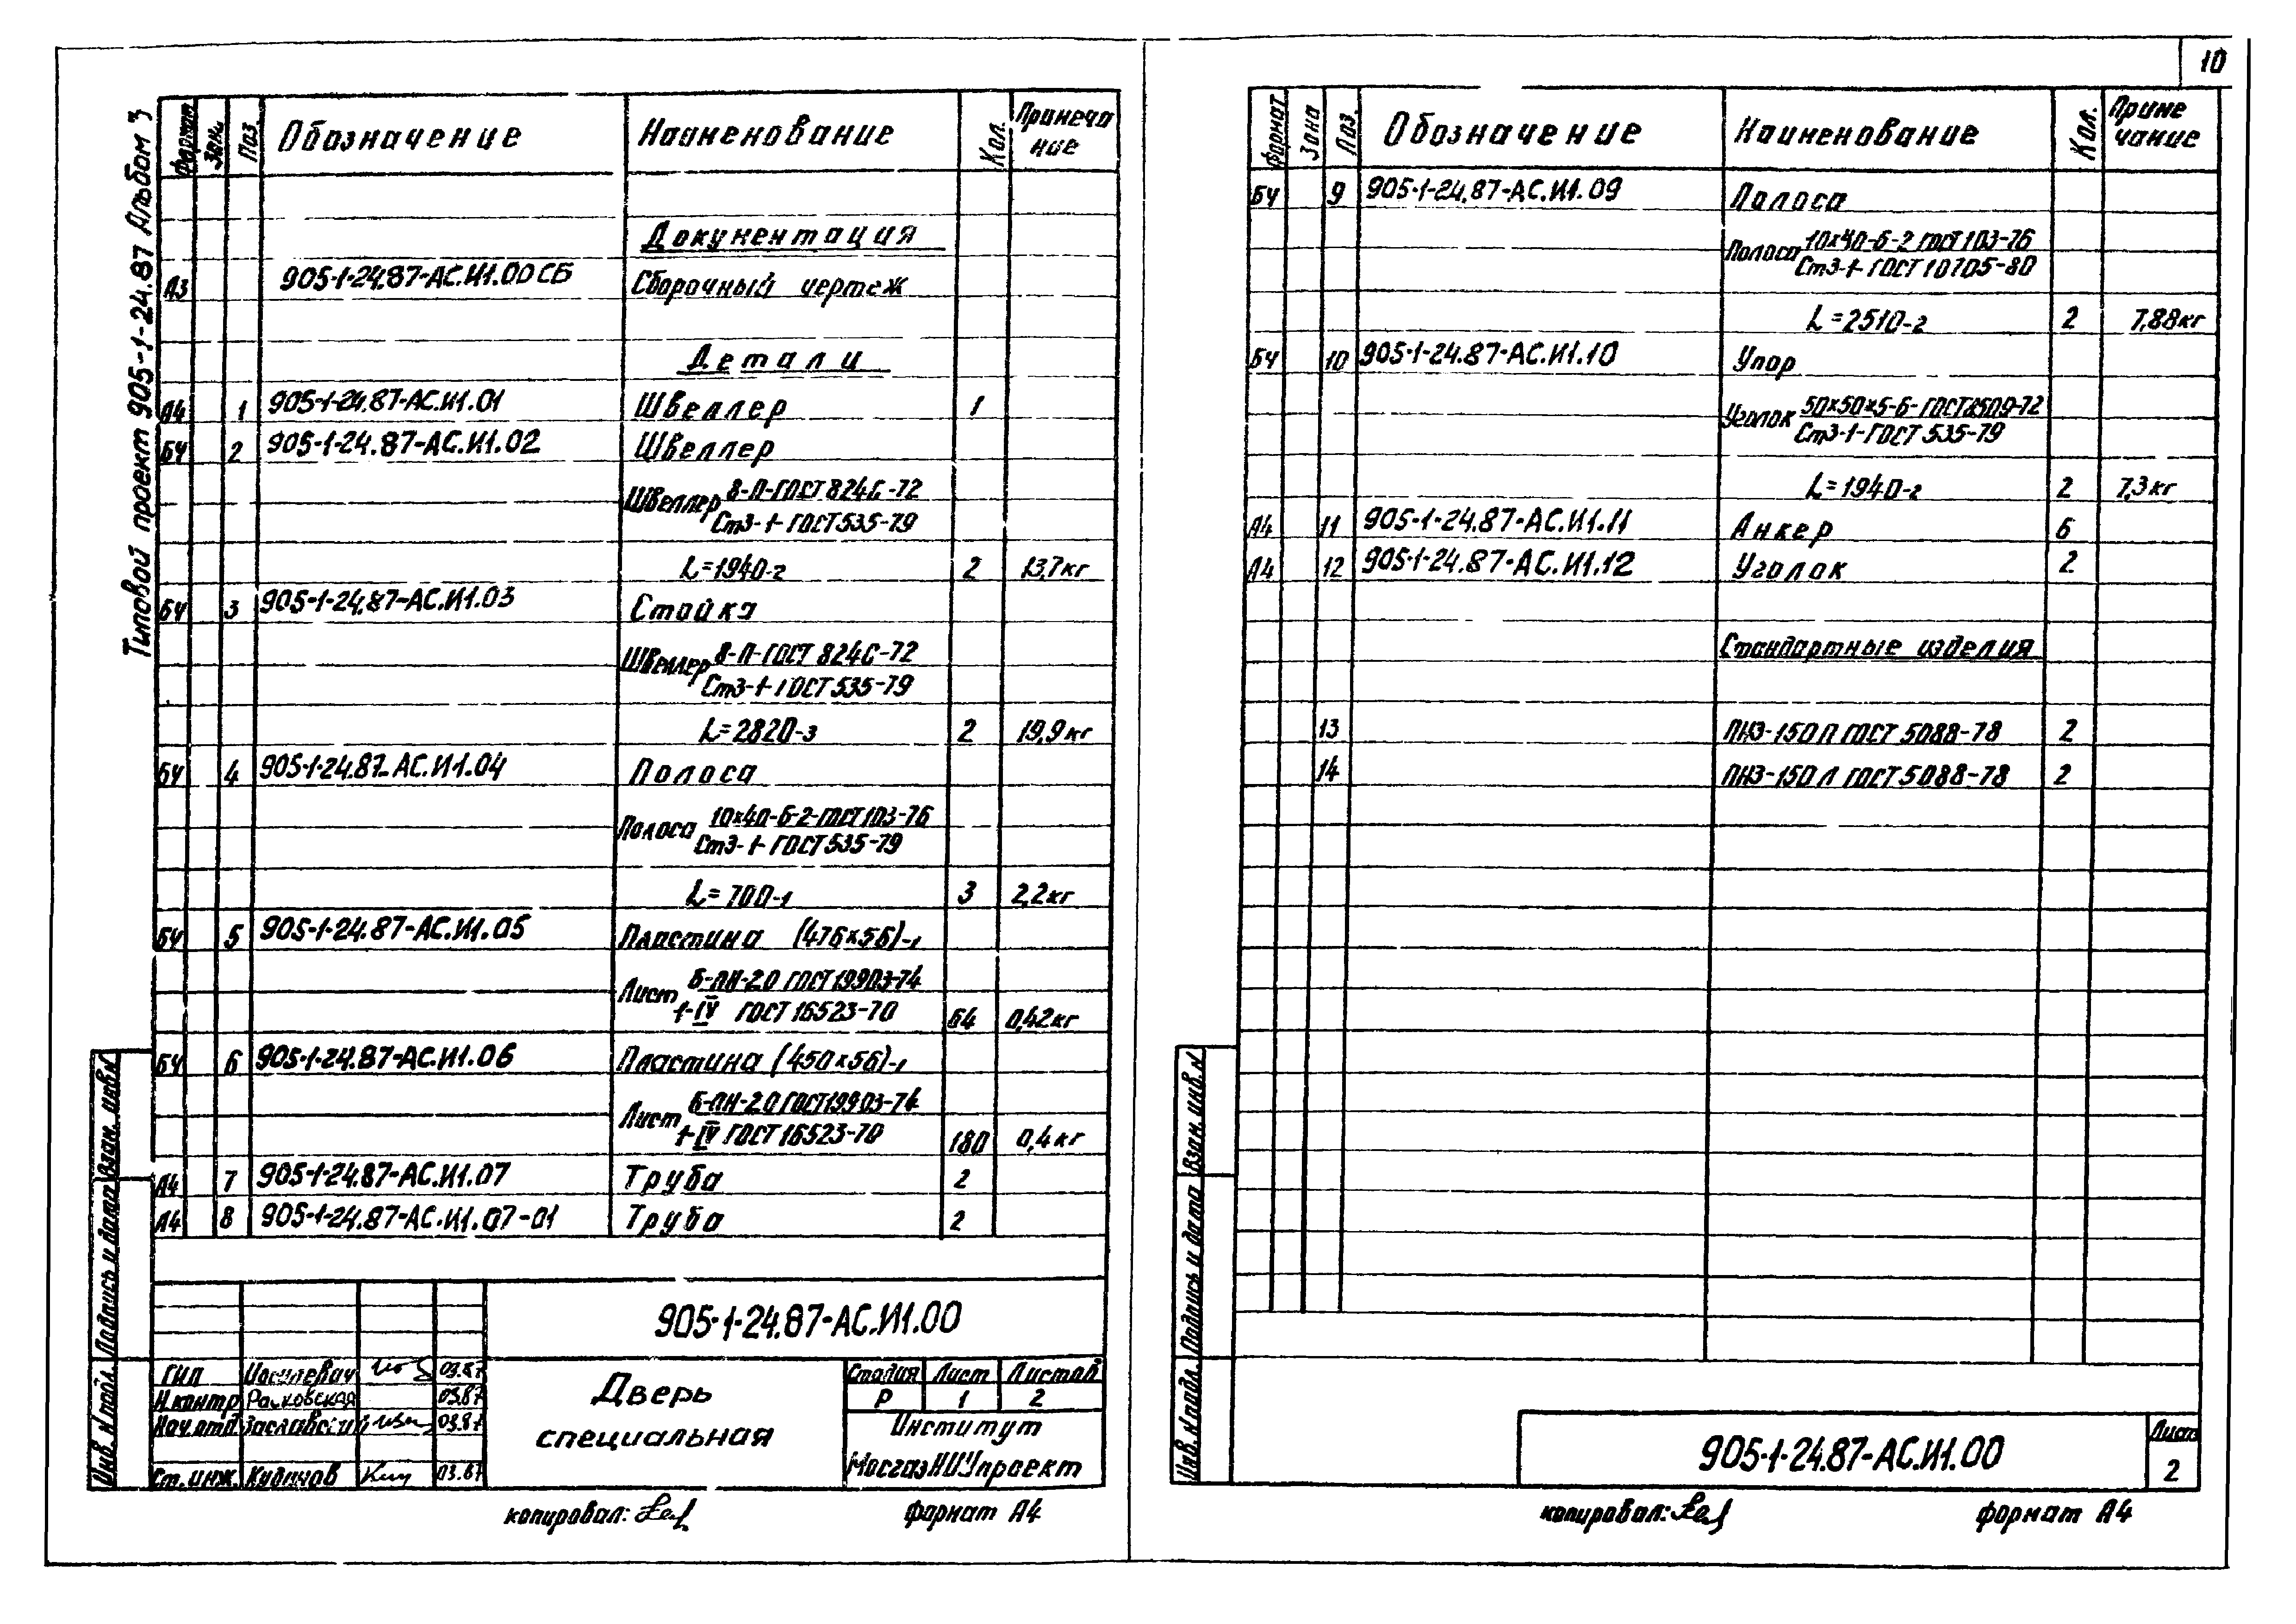 10
Типовой проект 905-1-24.87 Альбом 3
Формат Зона Поз. Обозначение Наименование Кол. Примечание
Документация
А3 905-1-24.87-АС.И1.00 СБ Сборочный чертеж
Детали
А4 1 905-1-24.87-АС.И1.01 Швеллер 1
БЧ 2 905-1-24.87-АС.И1.02 Швеллер
Швеллер 8-П-ГОСТ 8240-72
Ст3-1-ГОСТ 535-79
L=1940-2 2 13,7кг
БЧ 3 905-1-24.87-АС.И1.03 Стойка
Швеллер 8-П-ГОСТ 8240-72
Ст3-1-ГОСТ 535-79
L=2820-3 2 19,9кг
БЧ 4 905-1-24.87-АС.И1.04 Полоса
Полоса 10×40-Б-2-ГОСТ 103-76
Ст3-1-ГОСТ 535-79
L=700-1 3 2,2кг
БЧ 5 905-1-24.87-АС.И1.05 Пластина (476×56)-1
Лист Б-ПН-2.0 ГОСТ 19903-74
1-IV ГОСТ 16523-70 64 0,42кг
БЧ 6 905-1-24.87-АС.И1.06 Пластина (450×56)-1
Лист Б-ПН-2.0 ГОСТ 19903-74
1-IV ГОСТ 16523-70 180 0,4кг
А4 7 905-1-24.87-АС.И1.07 Труба 2
А4 8 905-1-24.87-АС.И1.07-01 Труба 2
Инв. № подл. Подпись и дата Взам. инв. №
905-1-24.87-АС.И1.00
ГИП 03.87
Н.контр Расковская 03.87
Нач.отд. Заславский 03.87
Ст.инж. 03.87
Дверь
специальная
Стадия Лист Листов
Р 1 2
Институт
МосгазНИИпроект
копировал: формат А4
Формат Зона Поз. Обозначение Наименование Кол. Примечание
БЧ 9 905-1-24.87-АС.И1.09 Полоса
Полоса 10×40-Б-2 ГОСТ 103-76
Ст3-1-ГОСТ 10705-80
L=2510-2 2 7,88кг
БЧ 10 905-1-24.87-АС.И1.10 Упор
Уголок 50×50×5-Б-ГОСТ 8509-72
Ст3-1-ГОСТ 535-79
L=1940-2 2 7,3кг
А4 11 905-1-24.87-АС.И1.11 Анкер 6
А4 12 905-1-24.87-АС.И1.12 Уголок 2
Стандартные изделия
13 ПН3-150 П ГОСТ 5088-78 2
14 ПН3-150 Л ГОСТ 5088-78 2
Инв. № подл. Подпись и дата Взам. инв. №
905-1-24.87-АС.И1.00
Лист
2
копировал: формат А4